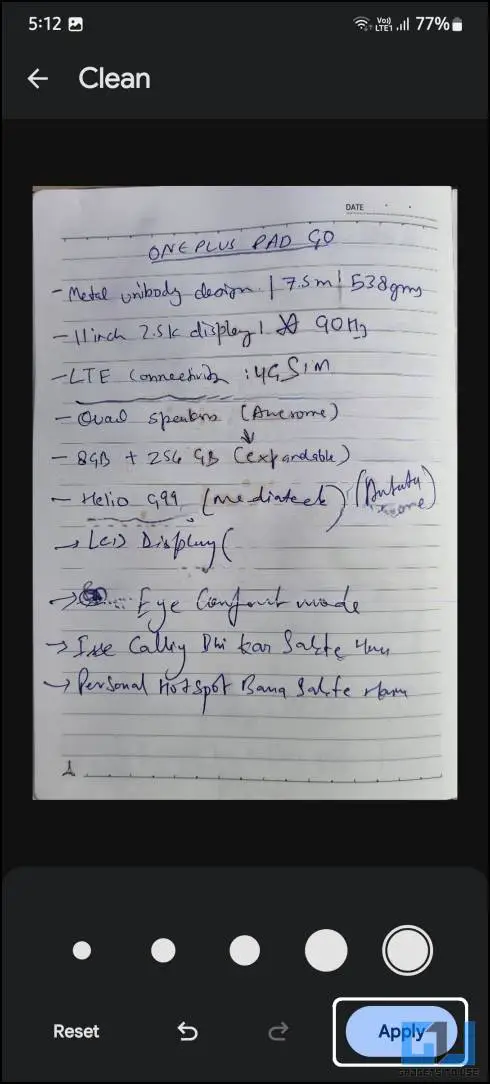 5:12 Vo) LTE1 77%
Clean
DATE
ONEPLUS PAD GO
- Metal unibody design | 7.5m | 538gms
- 11inch 2.5K display | 90Hz
- LTE Connectivity : 4G SIM
- Quad speakers (Awesome)
- 8GB + 256 GB (expandable)
- Helio G99 (mediateck) (Antutu
→ LCD Display (
→ Eye Comfort mode
→ Calling Bhi kar Sakte
→ Personal Hotspot Bana Sakte Ham
Reset Apply
GADGETS TO USE